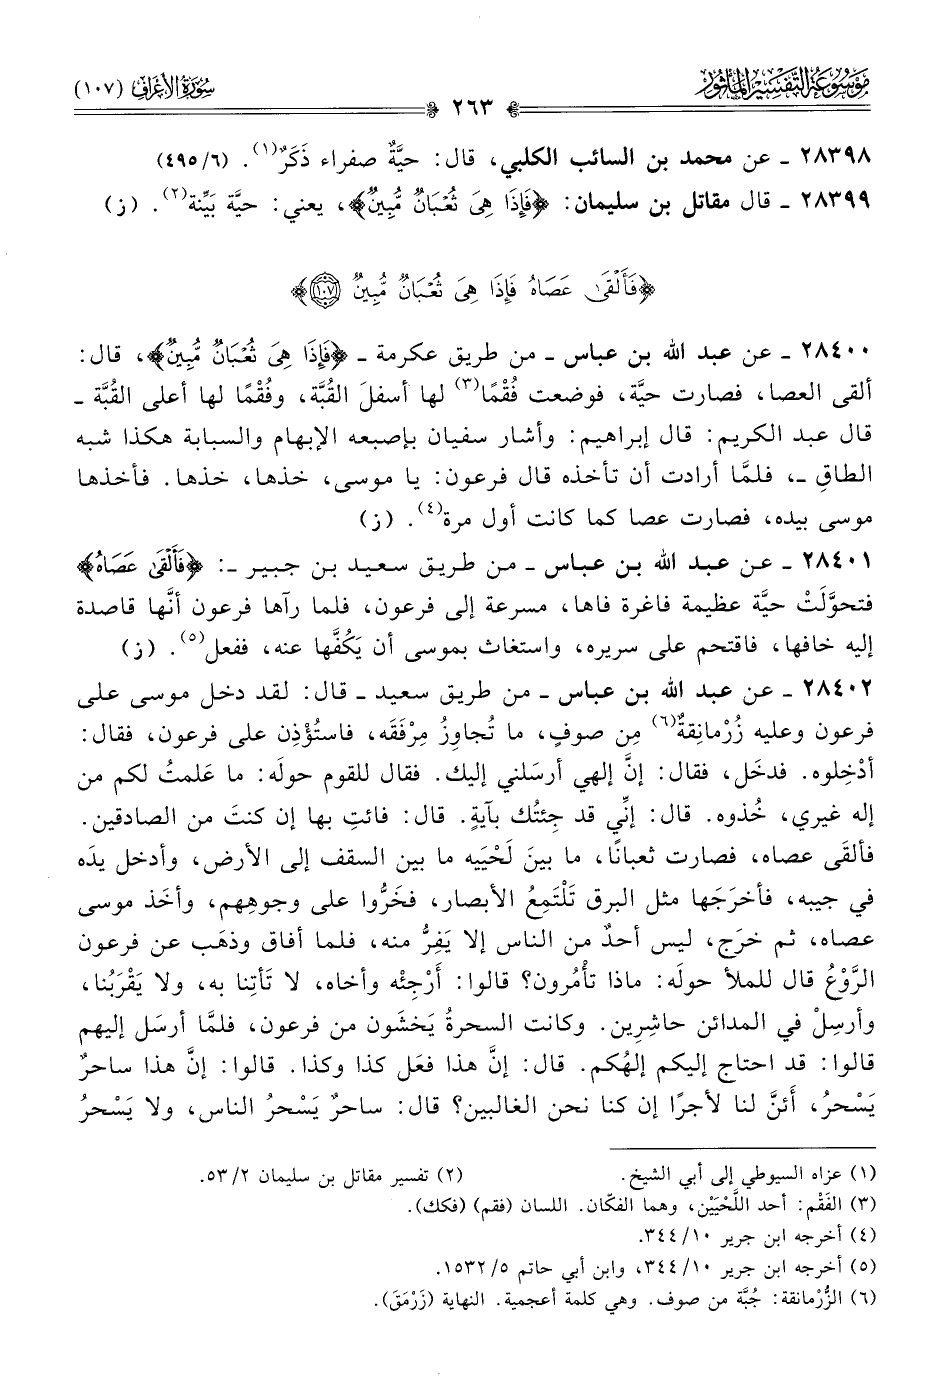 مَوْسُوعَةُ التَّفْسِيرِ المَأْثُورِ
سُورَةُ الأَعْرَافِ (١٠٧)
٢٦٣
٢٨٣٩٨ ـ عن محمد بن السائب الكلبي، قال: حيَّةٌ صفراء ذَكَرٌ(١). (٤٩٥/٦)
٢٨٣٩٩ ـ قال مقاتل بن سليمان: ﴿فَإِذَا هِىَ ثُعْبَانٌ مُّبِينٌ﴾، يعني: حيَّة بَيِّنة(٢). (ز)
﴿فَأَلْقَىٰ عَصَاهُ فَإِذَا هِىَ ثُعْبَانٌ مُّبِينٌ ١٠٧﴾
٢٨٤٠٠ ـ عن عبد الله بن عباس ـ من طريق عكرمة ـ ﴿فَإِذَا هِىَ ثُعْبَانٌ مُّبِينٌ﴾، قال:
ألقى العصا، فصارت حيَّة، فوضعت فُقْمًا(٣) لها أسفلَ القُبَّة، وفُقْمًا لها أعلى القُبَّة ـ
قال عبد الكريم: قال إبراهيم: وأشار سفيان بإصبعه الإبهام والسبابة هكذا شبه
الطاقِ ـ، فلمَّا أرادت أن تأخذه قال فرعون: يا موسى، خذها، خذها. فأخذها
موسى بيده، فصارت عصا كما كانت أول مرة(٤). (ز)
٢٨٤٠١ ـ عن عبد الله بن عباس ـ من طريق سعيد بن جبير ـ: ﴿فَأَلْقَىٰ عَصَاهُ﴾
فتحوَّلَتْ حيَّة عظيمة فاغرة فاها، مسرعة إلى فرعون، فلما رآها فرعون أنَّها قاصدة
إليه خافها، فاقتحم على سريره، واستغاث بموسى أن يَكُفَّها عنه، ففعل(٥). (ز)
٢٨٤٠٢ ـ عن عبد الله بن عباس ـ من طريق سعيد ـ قال: لقد دخل موسى على
فرعون وعليه زُرْمانِقةٌ(٦) مِن صوفٍ، ما تُجاوِزُ مِرْفَقَه، فاستُؤْذِن على فرعون، فقال:
أدْخِلوه. فدخَل، فقال: إنَّ إلهي أرسَلني إليك. فقال للقوم حولَه: ما عَلمتُ لكم من
إله غيري، خُذوه. قال: إنِّي قد جِئتُك بآيةٍ. قال: فائتِ بها إن كنتَ من الصادقين.
فألقَى عصاه، فصارت ثعبانًا، ما بينَ لَحْيَيه ما بين السقف إلى الأرض، وأدخل يدَه
في جيبه، فأخرَجَها مثل البرق تَلْتَمِعُ الأبصار، فخَرُّوا على وجوهِهم، وأخَذ موسى
عصاه، ثم خرَج، ليس أحدٌ من الناس إلا يَفِرُّ منه، فلما أفاق وذهَب عن فرعون
الرَّوْعُ قال للملأ حولَه: ماذا تأْمُرون؟ قالوا: أَرْجِئْه وأخاه، لا تَأتِنا به، ولا يَقْرَبُنا،
وأرسِلْ في المدائن حاشِرين. وكانت السحرةُ يَخشَون من فرعون، فلمَّا أرسَل إليهم
قالوا: قد احتاج إليكم إلهُكم. قال: إنَّ هذا فعَل كذا وكذا. قالوا: إنَّ هذا ساحرٌ
يَسْحرُ، أئنَّ لنا لأجرًا إن كنا نحن الغالبين؟ قال: ساحرٌ يَسْحرُ الناس، ولا يَسْحرُ
(١) عزاه السيوطي إلى أبي الشيخ. (٢) تفسير مقاتل بن سليمان ٥٣/٢.
(٣) الفَقْم: أحد اللَّحْيَيْن، وهما الفكّان. اللسان (فقم) (فكك).
(٤) أخرجه ابن جرير ٣٤٤/١٠.
(٥) أخرجه ابن جرير ٣٤٤/١٠، وابن أبي حاتم ١٥٣٢/٥.
(٦) الزُّرْمانقة: جُبَّة من صوف. وهي كلمة أعجمية. النهاية (زَرْمَقَ).